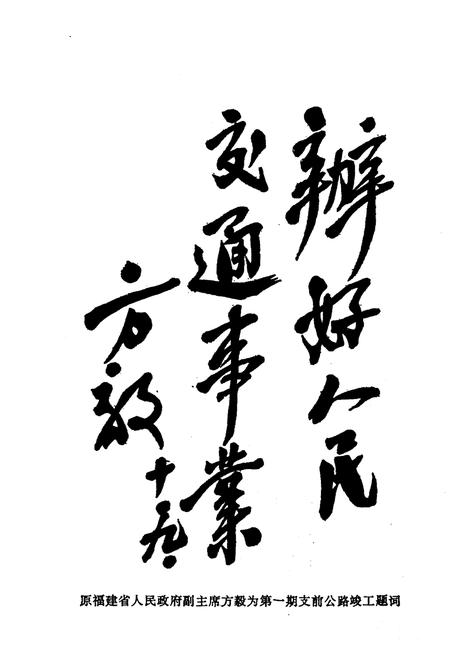 辦好人民
交通事業
方毅
十.九.
原福建省人民政府副主席方毅为第一期支前公路竣工题词